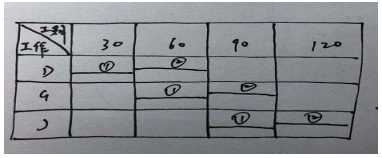 工期
工作 30 60 90 120
D ① ②
G ① ②
J ① ②